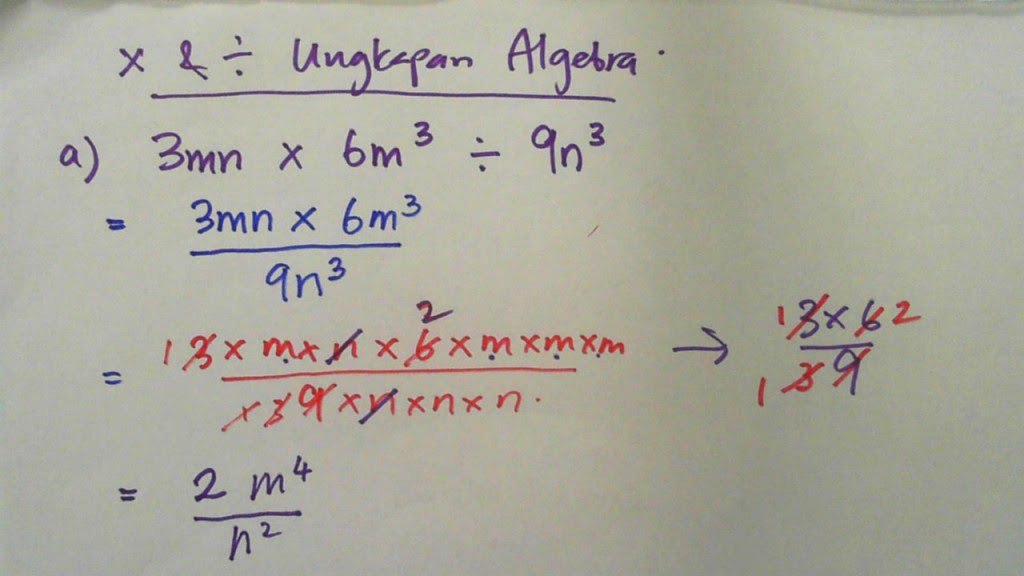 × & ÷ Ungkapan Algebra.
a) 3mn × 6m³ ÷ 9n³
= 3mn × 6m³
9n³
2
= 1 3 × m × n × 6 × m × m × m → 1 3 × 6 2
× 3 9 × n × n × n. 1 3 9
= 2 m⁴
n²